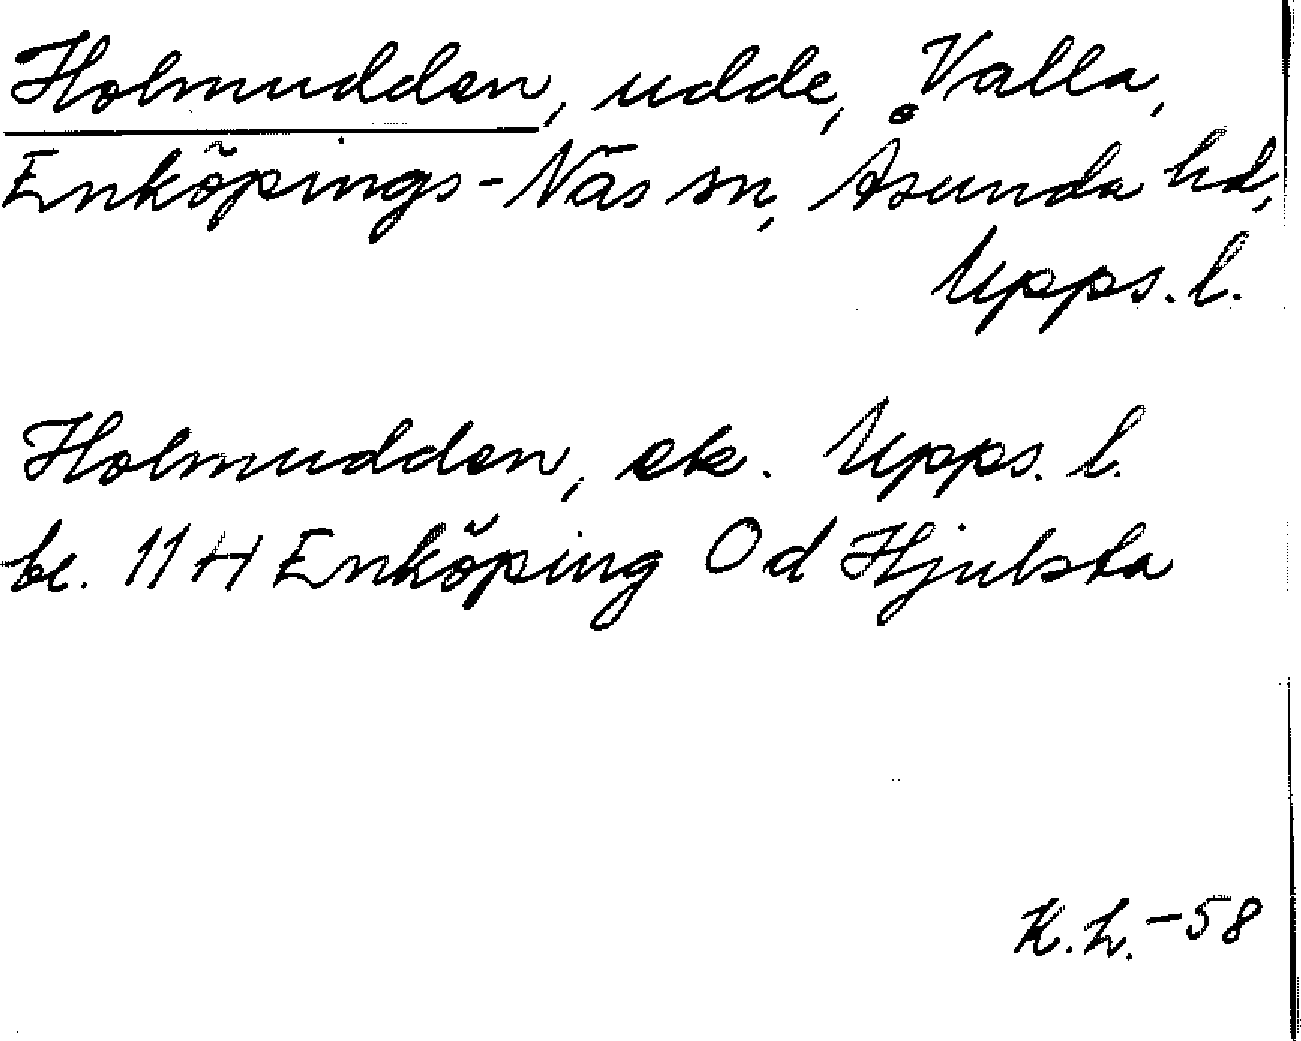 Holmudden, udde, Valla,
Enköpings-Näs sn, Åsunda hd,
Upps. l.
Holmudden, ek. Upps. l.
bl. 11 H Enköping 0d Hjulsta
K.L. -58